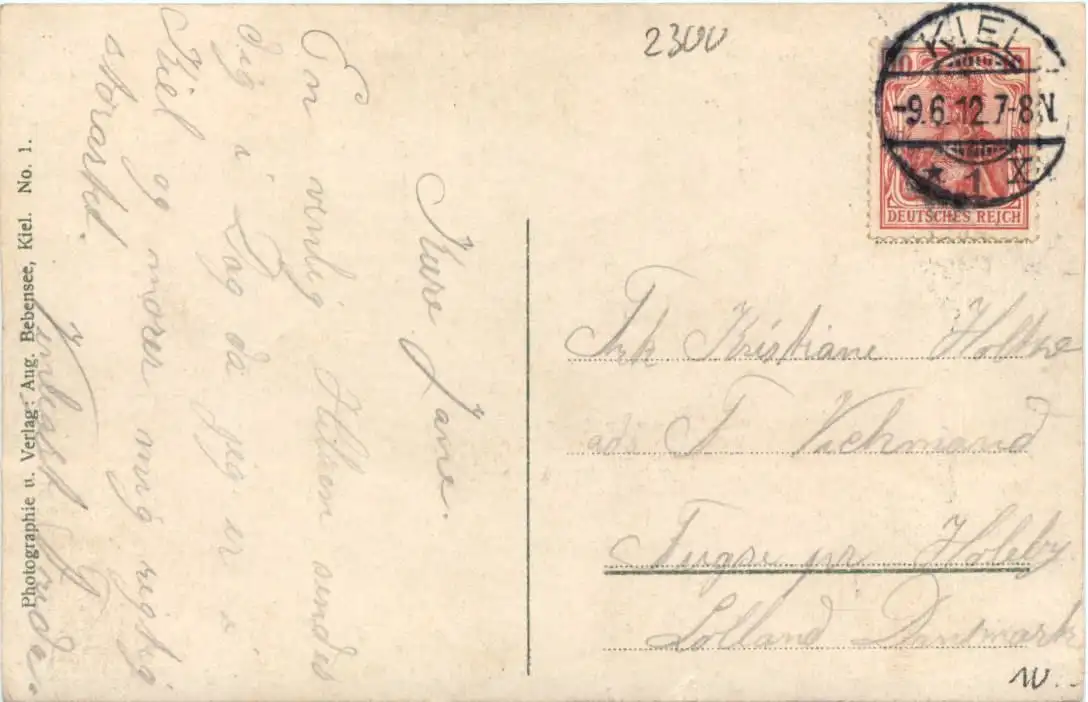 2300
KIEL
-9.6.12.7-8N.
* 1 X
10
DEUTSCHES REICH
Kære Jane.
En venlig Hilsen sendes
dig i Dag da jeg er i
Kiel og morer mig rigtig
storartet.
Venligst Frida.
Frk Kristiane Holtze
adr. F
Fugse pr Holeby
Lolland Danmark
Photographie u. Verlag: Aug. Bebensee, Kiel. No. 1.